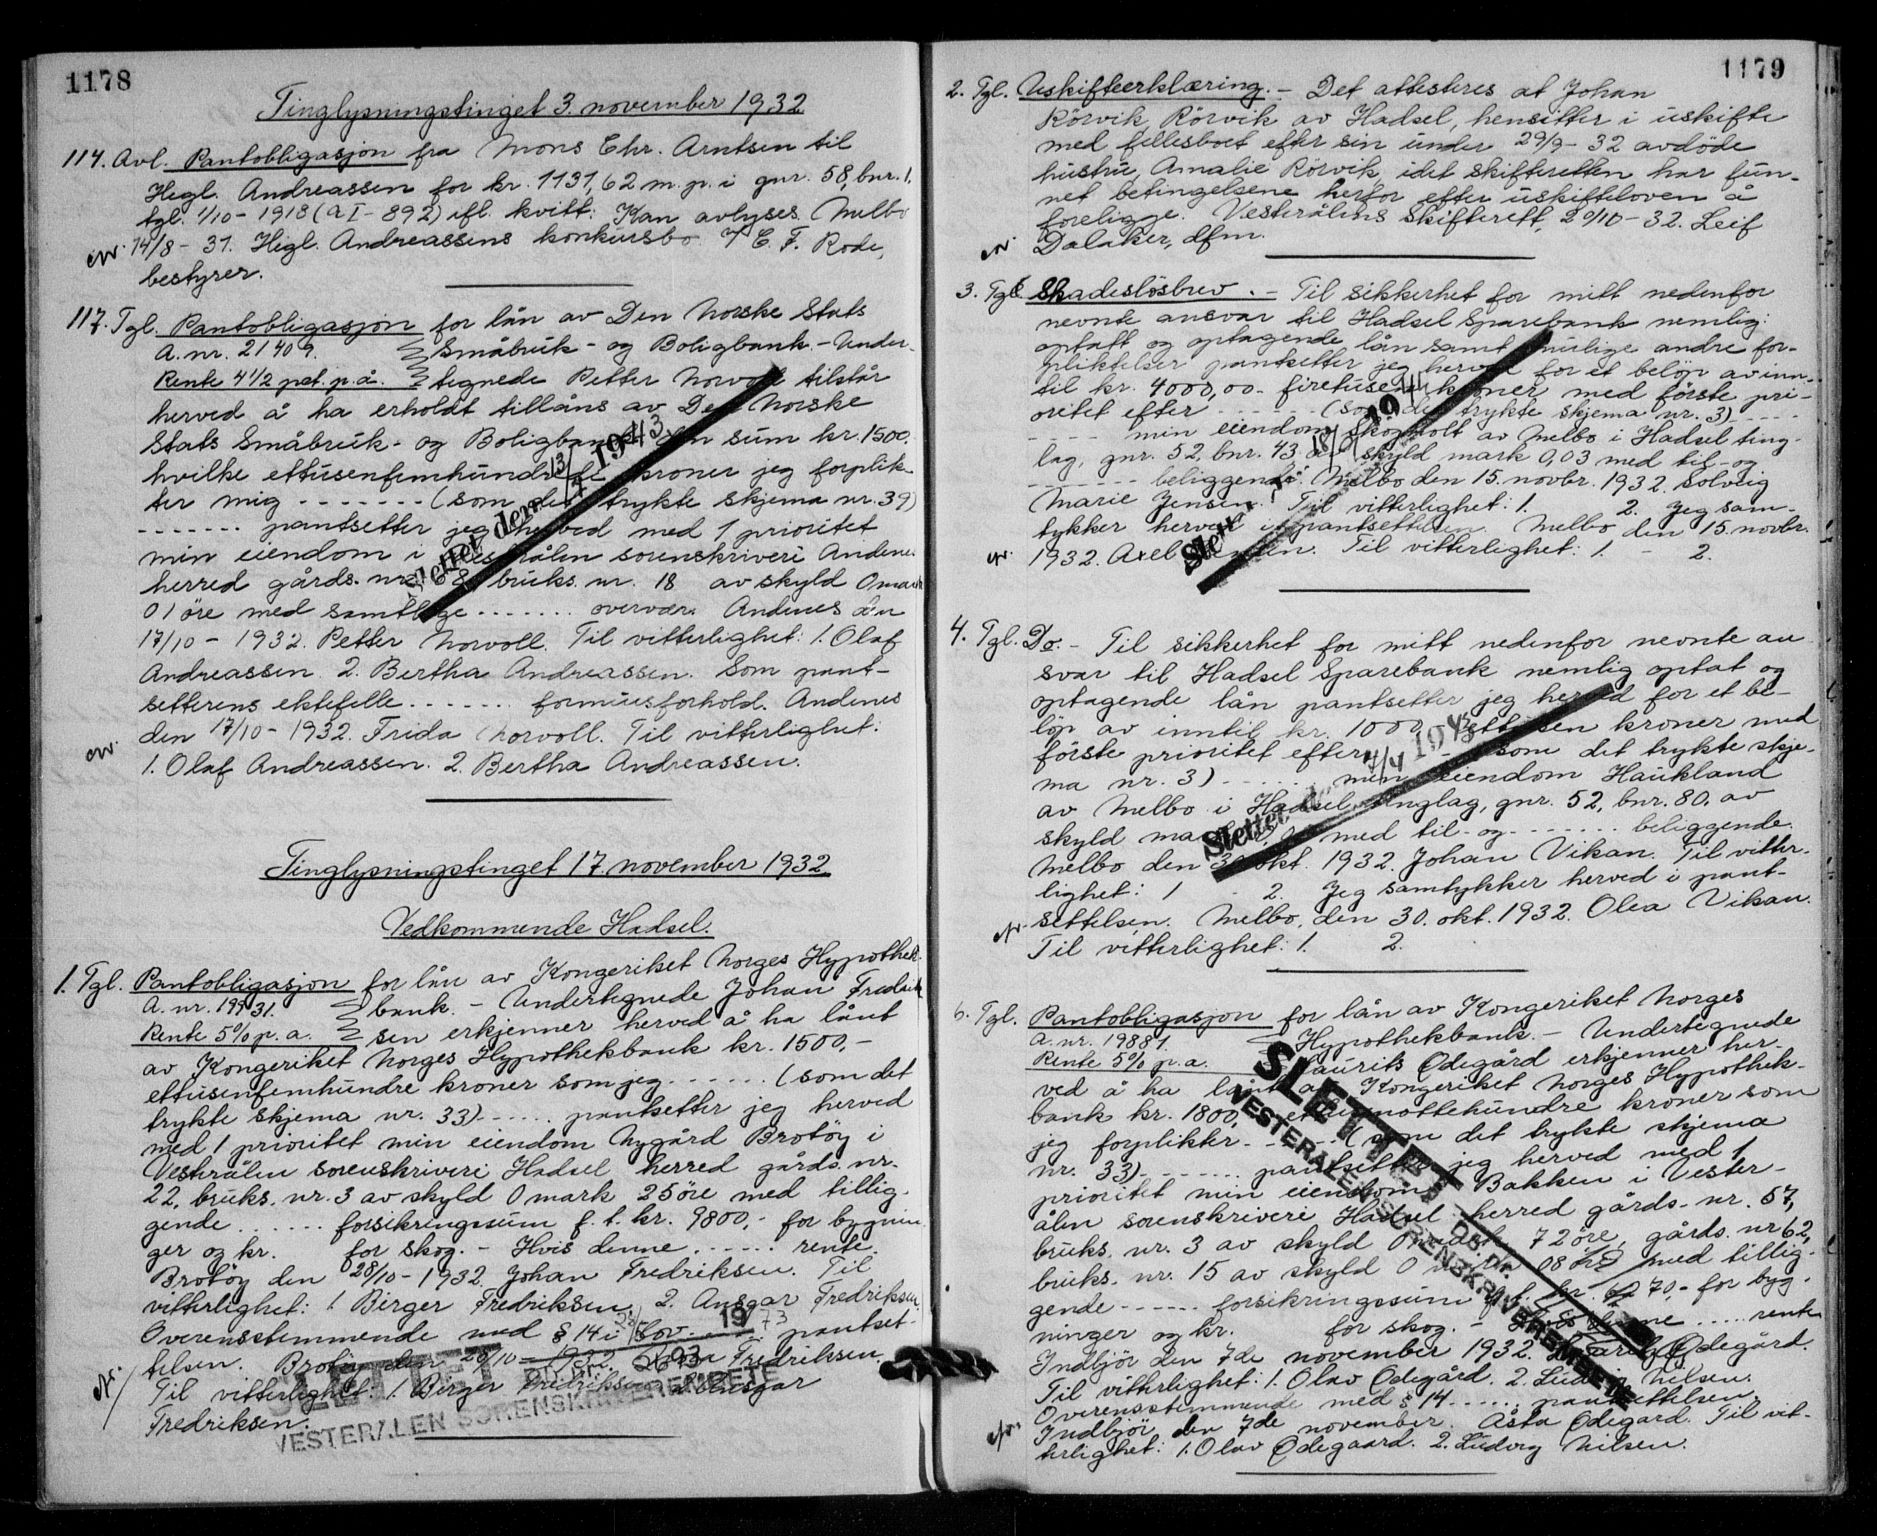 1178
Tinglysningstinget 3. november 1932
114. Avl. Pantobligasjon fra Mons Chr. Arntsen til
Hegl. Andreassen for kr. 1131,62 m. p. i gnr. 58, bnr. 1,
tgl. 1/10 - 1918 (a I - 892) ifl. kvitt: Kan avlyses Melbo
14/8 - 31. Hegl. Andreassens konkursbo. C. F. Rode,
bestyrer.
117. Tgl. Pantobligasjon for lån av Den Norske Stats
A. nr. 21409. Småbruk- og Boligbank. - Under-
Rente 4 1/2 pct. p. å. tegnede Petter Norvoll tilstår
herved å ha erholdt tillåns av Den Norske
Stats Småbruk- og Boligbank den sum kr. 1500.
hvilke ettusenfemhundrede kroner jeg forplik-
ter mig - - - - - - - (som det trykte skjema nr. 39)
- - - - - - - pantsetter jeg herved med 1 prioritet
min eiendom i Vesterålen sorenskriveri Andenes
herred gårds. nr. 8 bruks. nr. 18 av skyld 0 mark
01 öre med samtlige . . . . . . . overvær. Andenes den
17/10 - 1932. Petter Norvoll. Til vitterlighet: 1. Olaf
Andreassen. 2. Bertha Andreassen. Som pant-
setterens ektefelle . . . . . . . formuesforhold. Andenes
den 17/10 - 1932. Frida Norvoll. Til vitterlighet:
1. Olaf Andreassen. 2. Bertha Andreassen.
Slettet den 13/7 1943
Tinglysningstinget 17. november 1932
Vedkommende Hadsel.
1. Tgl. Pantobligasjon for lån av Kongeriket Norges Hypothek-
A. nr. 19931. bank. - Undertegnede Johan Fredrik
Rente 5% p. a. sen erkjenner herved å ha lånt
av Kongeriket Norges Hypothekbank kr. 1500,-
ettusenfemhundre kroner som jeg . . . . . . (som det
trykte skjema nr. 33) . . . . . pantsetter jeg herved
med 1 prioritet min eiendom Nygård Brotöy i
Vesterålen sorenskriveri Hadsel herred gårds. nr.
22, bruks. nr. 3 av skyld 0 mark 25 öre med tillig-
gende . . . . . . forsikringssum f. t. kr. 9800,- for bygnin-
ger og kr. for skog. - Hvis denne . . . . . . rente.
Brotöy den 28/10 - 1932. Johan Fredriksen. Til
vitterlighet: 1. Birger Fredriksen. 2. Ansgar Fredriksen.
Overensstemmende med § 14 i lov . . . . . . pantset-
telsen. Brotöy den 28/10 - 1932. Fredriksen.
Til vitterlighet: 1. Birger Fredriksen 2. Ansgar
Fredriksen.
19 73
SLETTET
VESTERÅLEN SORENSKRIVEREMBETE
1179
2. Tgl. Uskifteerklæring. - Det attesteres at Johan
Rörvik, Rörvik av Hadsel, hensitter i uskifte
med fellesboet efter sin under 29/9 - 32 avdöde
hustru, Amalie Rörvik, idet skifteretten har fun-
net betingelsene herfor efter uskifteloven å
foreligge. Vesterålens skifterett, 20/10 - 32. Leif
Dalaker, dfm.
3. Tgl. Skadeslösbrev. - Til sikkerhet for mitt nedenfor
nevnte ansvar til Hadsel Sparebank nemlig:
optatt og optagende lån samt mulige andre for-
pliktelser pantsetter jeg herved for et belöp av inn-
til kr. 4000,00 - firetusen kroner med förste pri-
oritet efter - - - - - - (som det trykte skjema nr. 3) - - - -
- - - - min eiendom Skogholt av Melbo i Hadsel ting-
lag, gnr. 52, bnr. 43 av skyld mark 0,03 med til- og
- - - - - - - beliggende. Melbo den 15. novbr. 1932. Solveig
Marie Jensen. Til vitterlighet: 1. 2. Jeg sam-
tykker herved i pantsettelsen. Melbo den 15. novbr.
1932. Axel Jensen. Til vitterlighet: 1. - 2.
4. Tgl. Do. - Til sikkerhet for mitt nedenfor nevnte an
svar til Hadsel Sparebank nemlig optat og
optagende lån pantsetter jeg herved for et be-
löp av inntil kr. 1000 - ettusen kroner med
förste prioritet efter - - - som det trykte skje-
ma nr. 3) - - - - - - min eiendom Haukland
av Melbo i Hadsel tinglag, gnr. 52, bnr. 80, av
skyld mark med til- og - - - - - - - beliggende.
Melbo den 30. okt. 1932. Johan Vikan. Til vitter-
lighet: 1 - 2. Jeg samtykker herved i pant-
settelsen. Melbo, den 30. okt. 1932. Olea Vikan.
Til vitterlighet: 1. 2.
Slettet den 7/4 1943
6. Tgl. Pantobligasjon for lån av Kongeriket Norges
A. nr. 19881. Hypothekbank. - Undertegnede
Rente 5% p. a. Laurits Ödegård erkjenner her-
ved å ha lånt av Kongeriket Norges Hypothek-
bank kr. 1800,- ettusenottehundre kroner som
jeg forplikter - - - - - - (som det trykte skjema
nr. 33) - - - - - - - pantsetter jeg herved med 1
prioritet min eiendom Bakken i Vester-
ålen sorenskriveri Hadsel herred gårds. nr. 57,
bruks. nr. 3 av skyld 0 mark 72 öre, gårds. nr 62,
bruks. nr. 15 av skyld 0 mark 08 öre med tillig-
gende - - - - - - forsikringssum f. t. kr. 70,- for byg-
ninger og kr. for skog. - Hvis denne . . . . . rente
Indbjör den 7de november 1932. Laurits Ödegård.
Til vitterlighet: 1. Olav Ödegård. 2. Ludvig Nilsen.
Overensstemmende med § 14 . . . . . . pantsettelsen.
Indbjör den 7de november. Åsta Ödegård. Til vit-
terlighet: 1. Olav Ödegaard. 2. Ludvig Nilsen.
SLETTET
DB.nr.
VESTERÅLEN SORENSKRIVEREMBETE